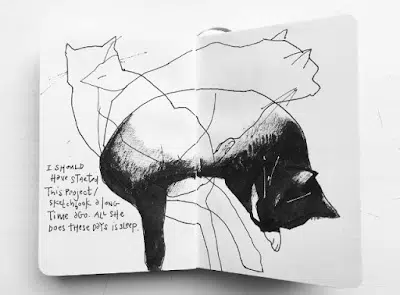 I SHOULD
HAVE STARTED
THIS PROJECT/
SKETCHBOOK A LONG
TIME AGO. ALL SHE
DOES THESE DAYS IS SLEEP.